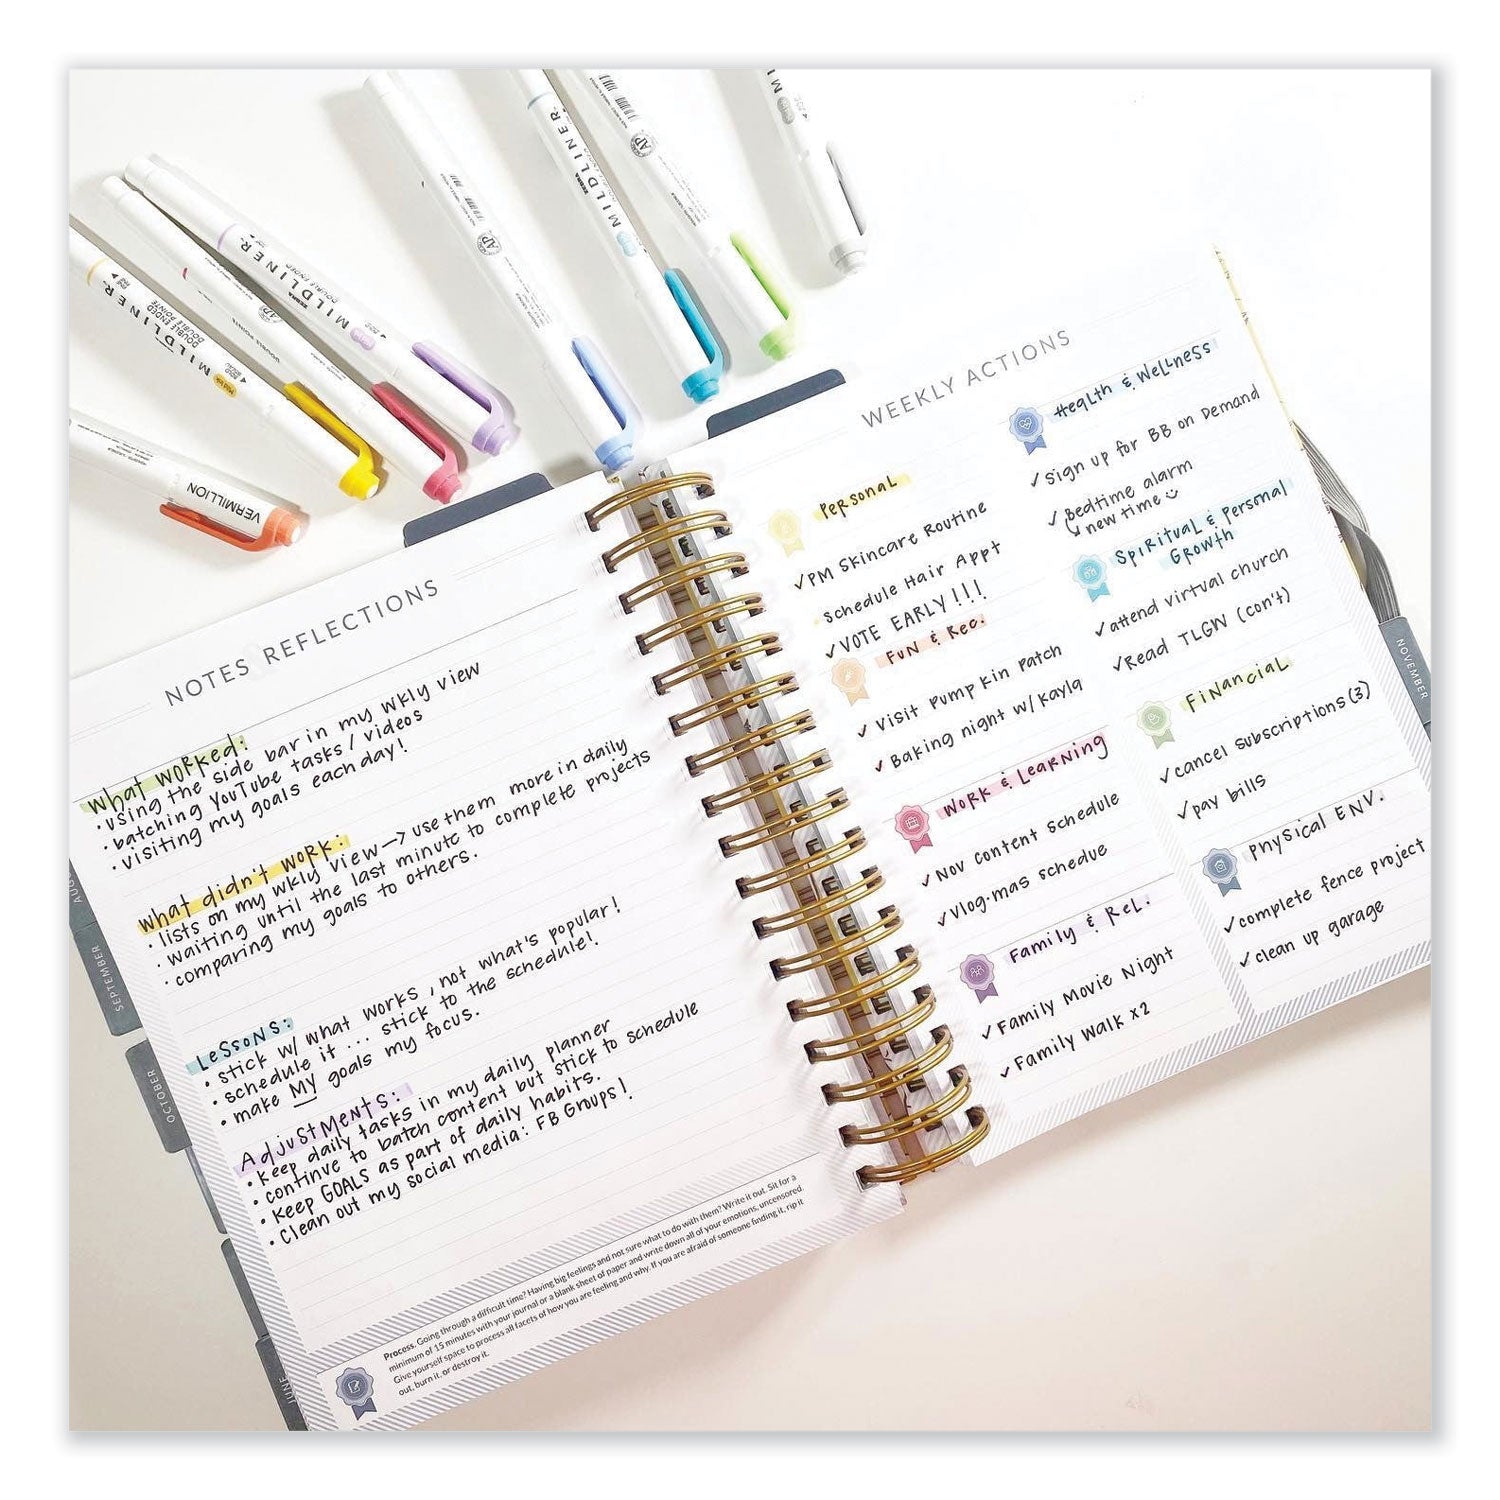 MILDLINER
DOUBLE ENDED
DOUBLE POINTE
MILDLINER
DOUBLE ENDER
ZEBRA
MILDLINER
ZEBRA
DOUBLE POINTE
AP
AP
VERMILLION
NOTES REFLECTIONS
what worked:
• using the side bar in my wkly view
• batching YouTube tasks / videos
• visiting my goals each day!
what didn't work:
• lists on my wkly view → use them more in daily
• waiting until the last minute to complete projects
• comparing my goals to others.
Lessons:
• stick w/ what works, not what's popular!
• schedule it ... stick to the schedule!
• make MY goals my focus.
Adjustments:
• keep daily tasks in my daily planner
• continue to batch content but stick to schedule
• keep GOALS as part of daily habits.
• Clean out my social media: FB Groups!
Process. Going through a difficult time? Having big feelings and not sure what to do with them? Write it out. Sit for a
minimum of 15 minutes with your journal or a blank sheet of paper and write down all of your emotions, uncensored.
Give yourself space to process all facets of how you are feeling and why. If you are afraid of someone finding it, rip it
out, burn it, or destroy it.
SEPTEMBER
OCTOBER
JUNE
WEEKLY ACTIONS
Personal
✓ PM Skincare Routine
Schedule Hair Appt
✓ VOTE EARLY!!!
Fun & Rec.
✓ Visit Pumpkin Patch
✓ Baking night w/ Kayla
Work & Learning
✓ Nov Content Schedule
✓ Vlog-mas schedue
Family & Rel.
✓ Family Movie Night
✓ Family Walk x2
Health & Wellness
✓ Sign up for BB on Demand
✓ Bedtime alarm
new time
Spiritual & Personal
Growth
✓ attend virtual church
✓ Read TLGW (con't)
Financial
✓ cancel subscriptions (3)
✓ pay bills
Physical ENV.
✓ complete fence project
✓ clean up garage
NOVEMBER